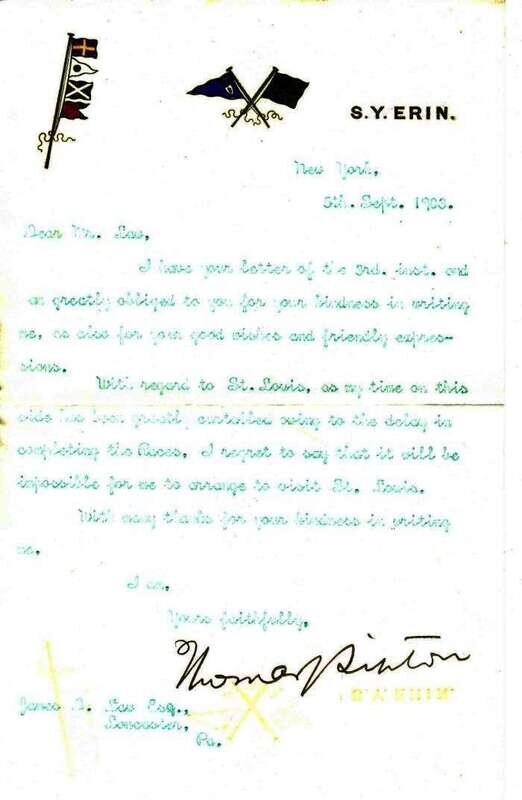 S.Y. ERIN.
New York,
5th. Sept. 1903.
Dear Mr. Law,
I have your letter of the 3rd. inst. and
am greatly obliged to you for your kindness in writing
me, as also for your good wishes and friendly expres-
sions.
With regard to St. Louis, as my time on this
side has been greatly curtailed owing to the delay in
completing the Races, I regret to say that it will be
impossible for me to arrange to visit St. Louis.
With many thanks for your kindness in writing
me.
I am,
Yours faithfully,
Thomas J Lipton
James D. Law Esq.,
Lancaster,
Pa.